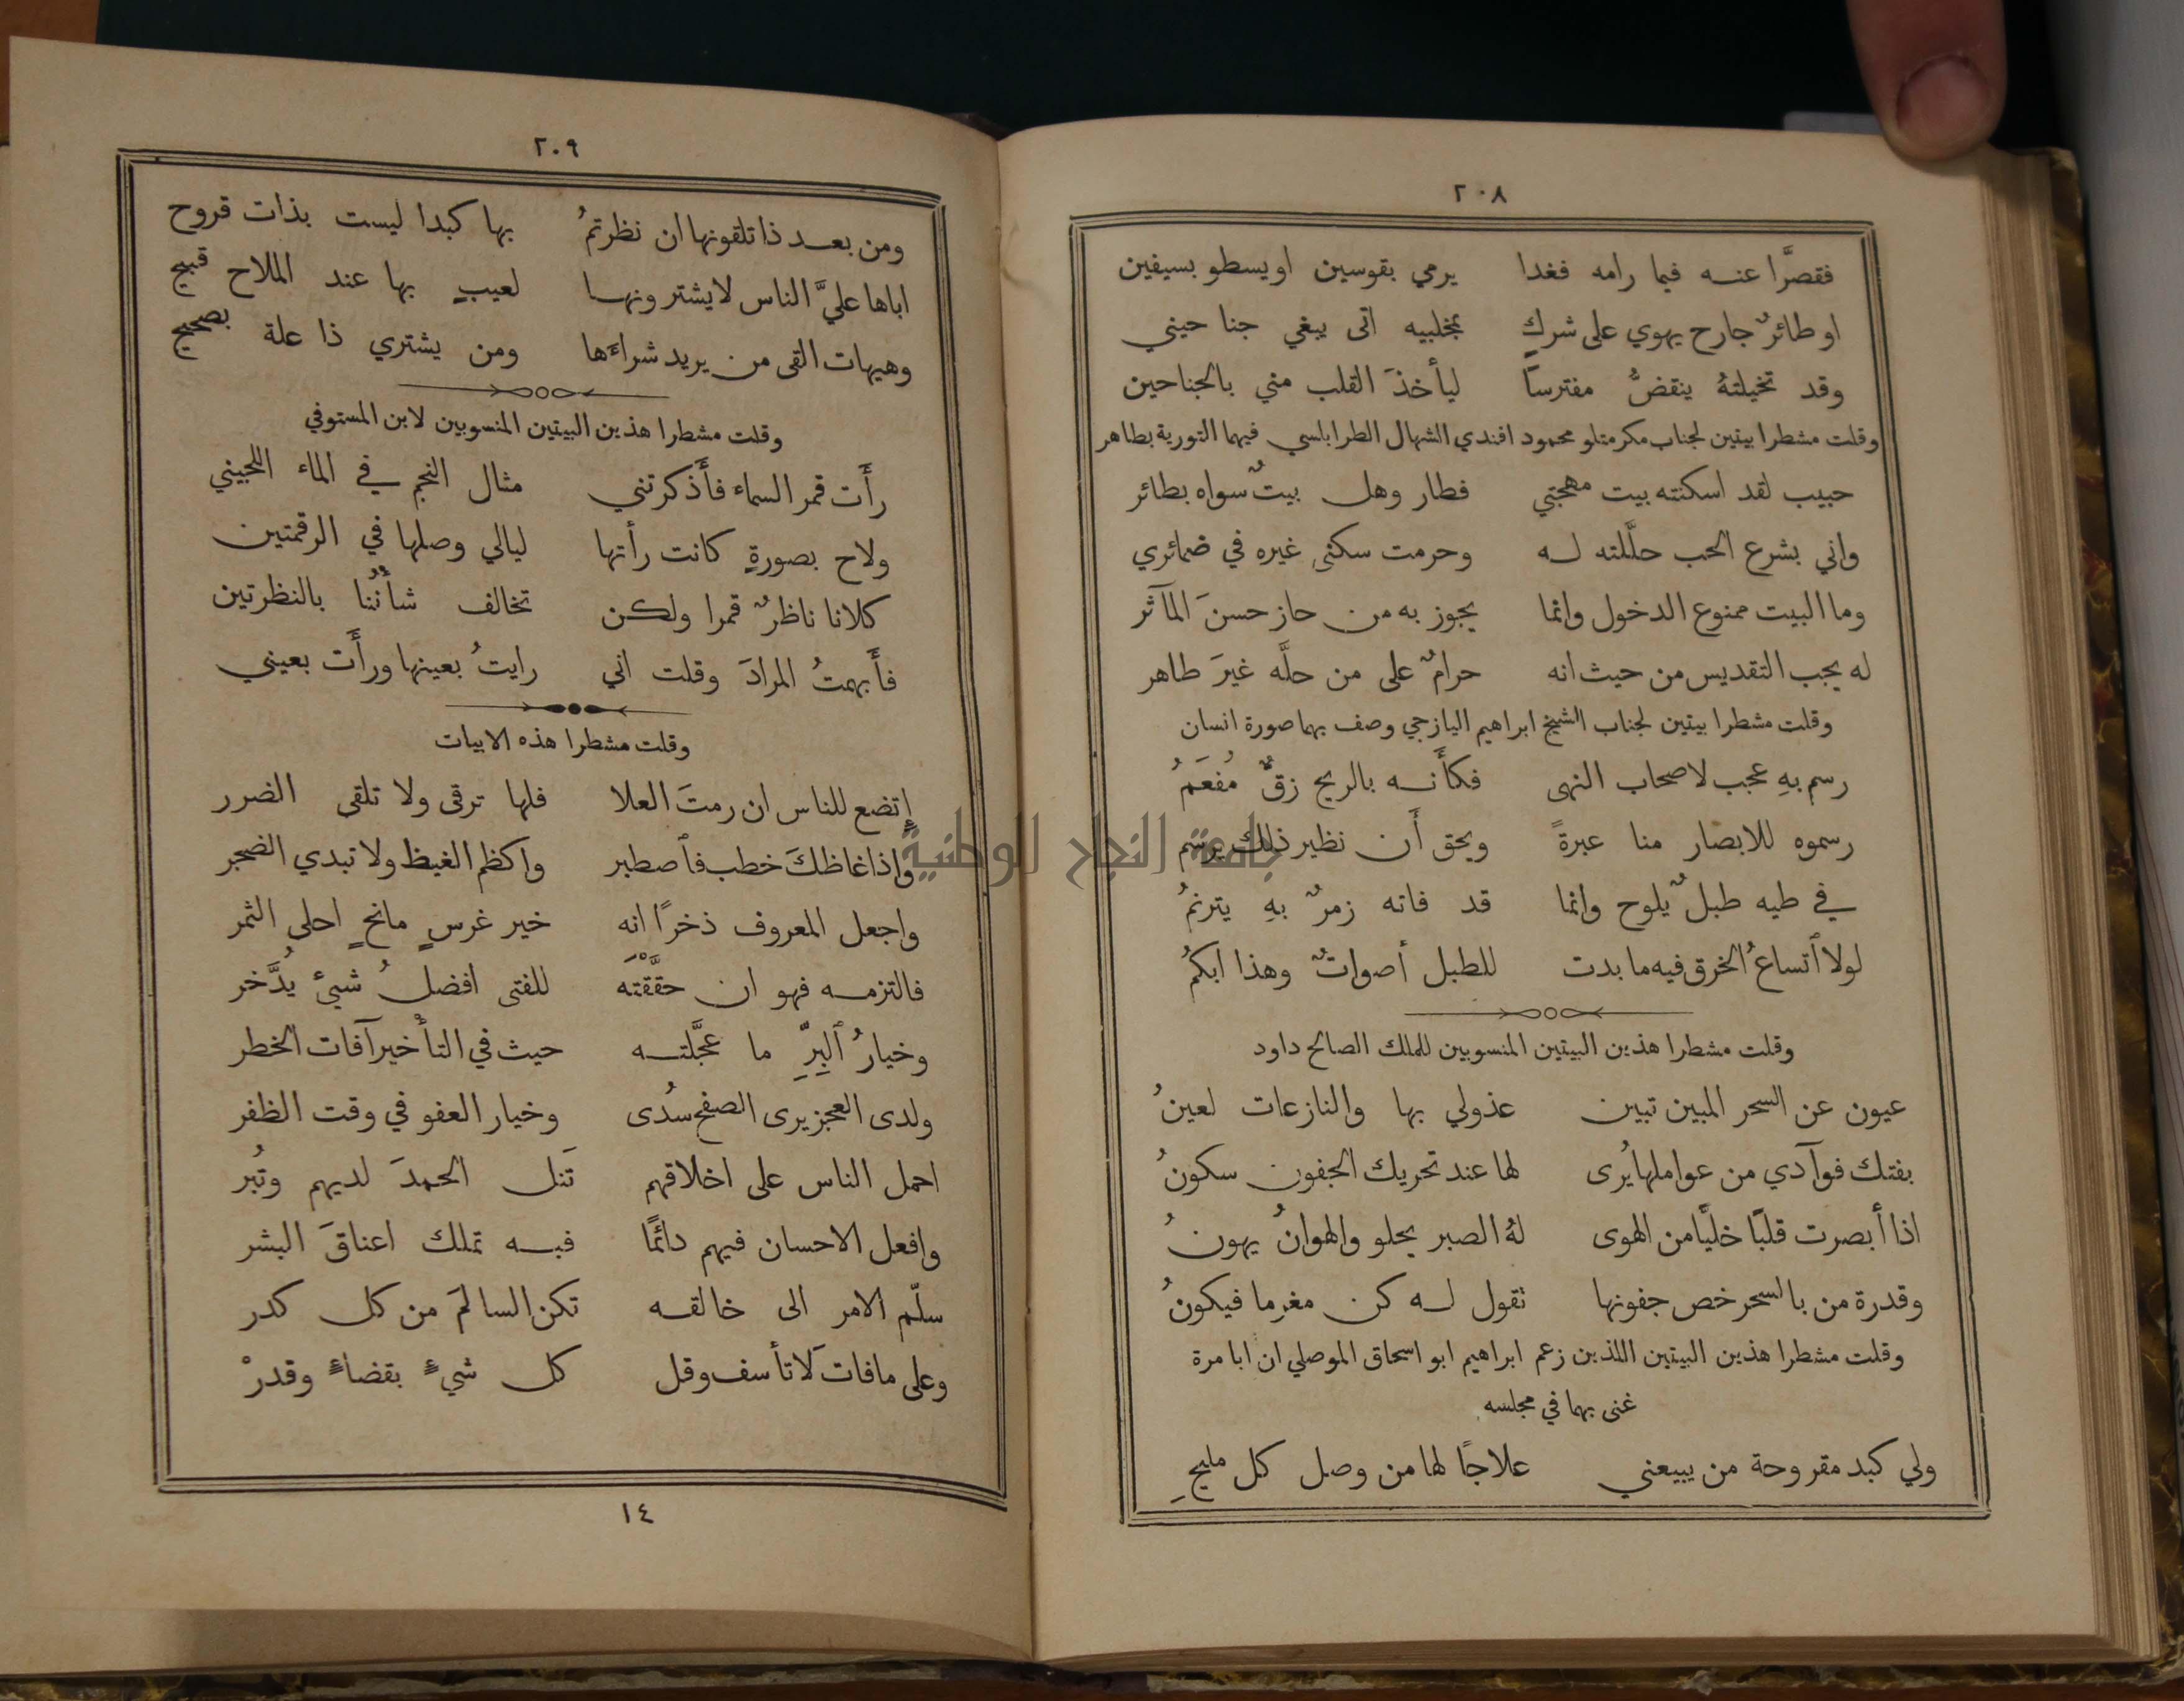 ٢٠٨
فقصرَّا عنه فيما رامه فغدا يرمي بقوسين اويسطو بسيفين
او طائرٌ جارح يهوي على شركٍ بمخلبيه اتى يبغي جنا حيني
وقد تخيلتهُ ينقضُّ مفترسًا ليأخذَ القلب مني بالجناحين
وقلت مشطرا بيتين لجناب مكرمتلو محمود افندي الشهال الطرابلسي فيهما التورية بطاهر
حبيب لقد اسكنته بيت مهجتي فطار وهل بيتٌ سواه بطائر
واني بشرع الحب حلَّلته له وحرمت سكنى غيره في ضمائري
وما البيت ممنوع الدخول وانما يجوز به من حاز حسنَ المآثر
له يجب التقديس من حيث انه حرامٌ على من حلَّه غيرَ طاهر
وقلت مشطرا بيتين لجناب الشيخ ابراهيم اليازجي وصف بهما صورة انسان
رسم بهِ عجب لاصحاب النهى فكأَنه بالريح زقٌّ مُفعَمُ
رسموه للابصار منا عبرةً ويحق أَن نظير ذلك يرسم
في طيه طبلٌ يلوح وانما قد فاته زمرٌ بهِ يترنمُ
لولا ٱتساعُ الخرق فيه ما بدت للطبل أصواتٌ وهذا ابكمُ
وقلت مشطرا هذين البيتين المنسوبين للملك الصالح داود
عيون عن السحر المبين تبين عذولي بها والنازعات لعينُ
بفتك فوآدي من عواملها يُرى لها عند تحريك الجفون سكونُ
اذا أبصرت قلبًا خليًا من الهوى لهُ الصبر يحلو والهوانُ يهونُ
وقدرة من بالسحر خص جفونها نقول له كن مغرما فيكونُ
وقلت مشطرا هذين البيتين اللذين زعم ابراهيم ابو اسحاق الموصلي ان ابا مرة
غنى بهما في مجلسه
ولي كبد مقروحة من يبيعني علاجًا لها من وصل كل مليحِ
٢٠٩
ومن بعد ذا تلقونها ان نظرتمُ بها كبدا ليست بذات قروح
اباها عليَّ الناس لايشترونها لعيبٍ بها عند الملاح قبيح
وهيهات القى من يريد شراءَها ومن يشتري ذا علة بصحيح
وقلت مشطرا هذين البيتين المنسوبين لابن المستوفي
رأَت قمر السماء فأَذكرتني مثال النجم في الماء اللجيني
ولاح بصورةٍ كانت رأتها ليالي وصلها في الرقمتين
كلانا ناظرٌ قمرا ولكن تخالف شأنُنا بالنظرتين
فأَبهمتُ المرادَ وقلت اني رايتُ بعينها ورأَت بعيني
وقلت مشطرا هذه الابيات
إِتضع للناس ان رمتَ العلا فلها ترقى ولا تلقى الضرر
واذا غاظكَ خطب فٱصطبر واكظم الغيظ ولا تبدي الضجر
واجعل المعروف ذخرًا انه خير غرسٍ مانحٍ احلى الثمر
فالتزمه فهو ان حقَّقْتَه للفتى افضلُ شيئ يُدَّخر
وخيارُ ٱلبِرِّ ما عجَّلته حيث في التأخير آفات الخطر
ولدى العجز يرى الصفح سُدى وخيار العفو في وقت الظفر
احمل الناس على اخلاقهم تَنل الحمدَ لديهم وتُبر
وافعل الاحسان فيهم دائمًا فبه تملك اعناقَ البشر
سلّم الامر الى خالقه تكن السالمَ من كل كدر
وعلى مافات لاتأسف وقل كل شيءٍ بقضاءٍ وقدرْ
١٤
جامعة النجاح الوطنية